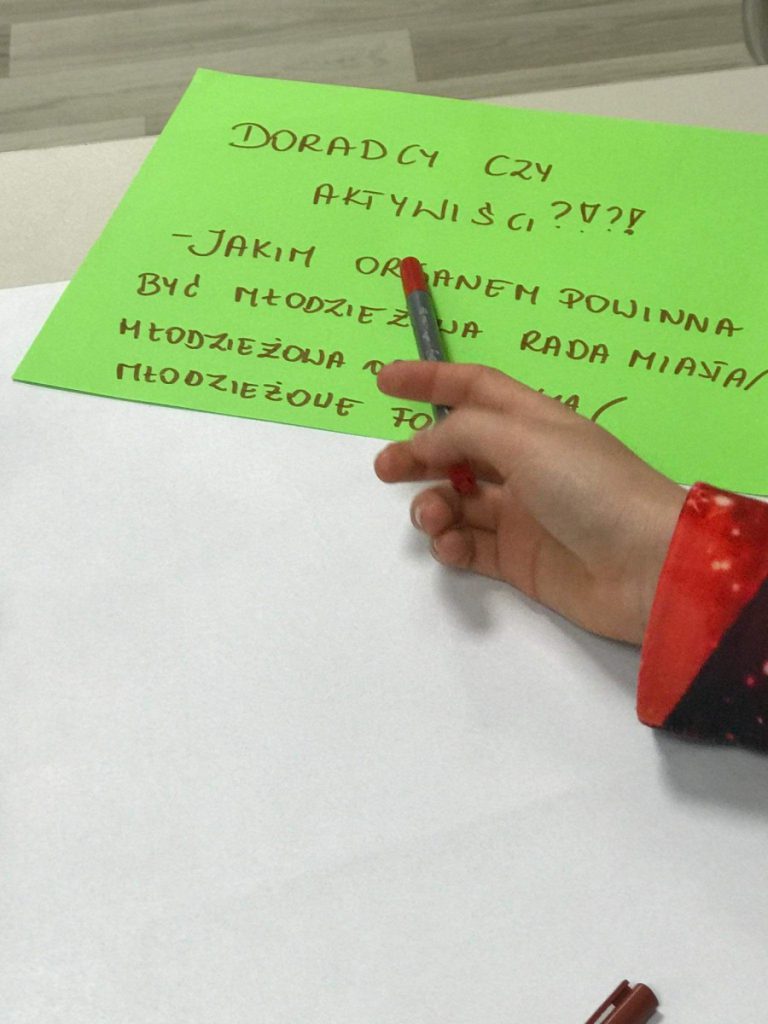 DORADCY CZY
AKTYWIŚCI ?!?!
- JAKIM ORGANEM POWINNA
BYĆ MŁODZIEŻOWA RADA MIASTA/
MŁODZIEŻOWA
MŁODZIEŻOWE